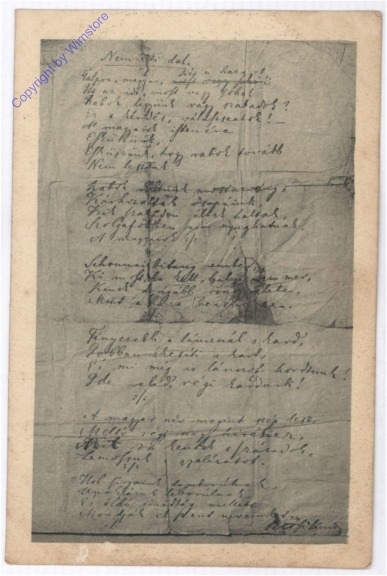 Copyright by Wimstore
Nemzeti dal.
Talpra magyar, hí a haza!
Itt az idő, most vagy soha!
Rabok legyünk vagy szabadok?
Ez a kérdés, válasszatok! —
A magyarok istenére
Esküszünk,
Esküszünk, hogy rabok tovább
Nem leszünk!
Rabok voltunk mostanáig,
Kárhozottak ősapáink,
Kik szabadon éltek haltak,
Szolgaföldben nem nyughatnak.
A magyarok
Sehonnai bitang ember,
Ki most, ha kell, halni nem mer,
Kinek drágább rongy élete,
Mint a haza becsülete.
Fényesebb a láncnál a kard,
Jobban ékesíti a kart,
És mi még is láncot hordtunk!
Ide veled, régi kardunk!
A magyar név megint szép lesz,
Méltó régi nagy híréhez,
Mit rá kentek a századok,
Lemossuk a gyalázatot.
Hol sírjaink domborulnak,
Unokáink leborulnak,
És áldó imádság mellett
Mondják el szent neveinket.
Petőfi Sándor